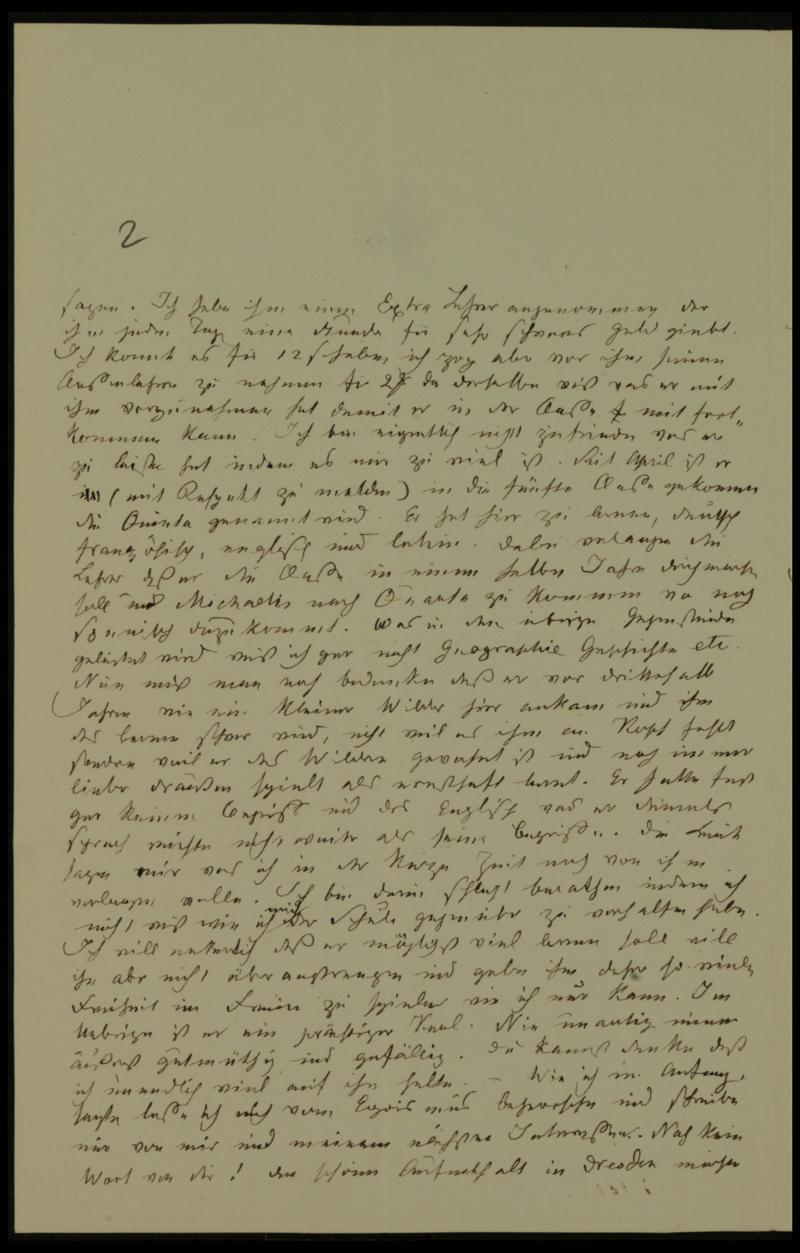 2
sagen. Ich habe ihm einen Extra Lehrer angenommen der
ihm jeden Tag eine Stunde für sehr schweres Geld giebt.
Ich konnte es für 12 haben, ich zog aber vor ihm seinen
Classenlehrer zu nehmen für da derselbe weiß was er mit
ihm vorzunehmen hat damit er in der Classe mit fort-
kommen kann. Ich bin eigentlich nicht zufrieden was er
zu leisten hat indem es mir zu viel ist. Seit April ist er
(mit Respekt zu melden) in die fünfte Classe gekommen
die Quinta genannt wird. Er hat hier zu lernen, deutsch
französisch, englisch und latein. Dabei verlangen die
Lehrer daß er die Classe in einem halben Jahr durchmachen
soll und Michaelis nach Quarta zu kommen wo noch
dazu kommt. Was in den übrigen Gegenständen
geleistet wird weiß ich gar nicht Geographie Geschichte etc.
Nun muß man noch bedenken daß er vor dritthalb
Jahren wie ein kleiner Wilder hier ankam und ihm
das lernen schwer wird, nicht weil es ihm an Kopf fehlt
sondern weil er das Wilden gewohnt ist und noch immer
lieber draußen spielt als ernsthaft lernt. Er hatte fast
gar keinen Begriff und das Englisch was er damals
sprach reichte nicht weiter als seine Begriffe. Die Leute
sagen mir was ich in der kurzen Zeit noch von ihm
verlangen wolle. Ich bin darin schlecht berathen indem ich
nicht weiß wie ich mich der Schule gegenüber zu verhalten habe.
Ich will natürlich daß er möglichst viel lernen soll will
ihn aber nicht überanstrengen und gebe ihm daher so viele
Freiheit im Freien zu spielen wie ich nur kann. Im
Uebrigen ist er ein prächtiger Kerl. Nie unartig immer
äußerst gutmüthig und gefällig. Du kannst denken daß
ich unendlich viel auf ihn halte. – Wie ich im Anfang
sagte lasse ich mich vom Egoismus beherrschen und schreibe
nur von mir und meinem nächsten Interessen. Noch kein
Wort von dir! den schönen Aufenthalt in Dresden